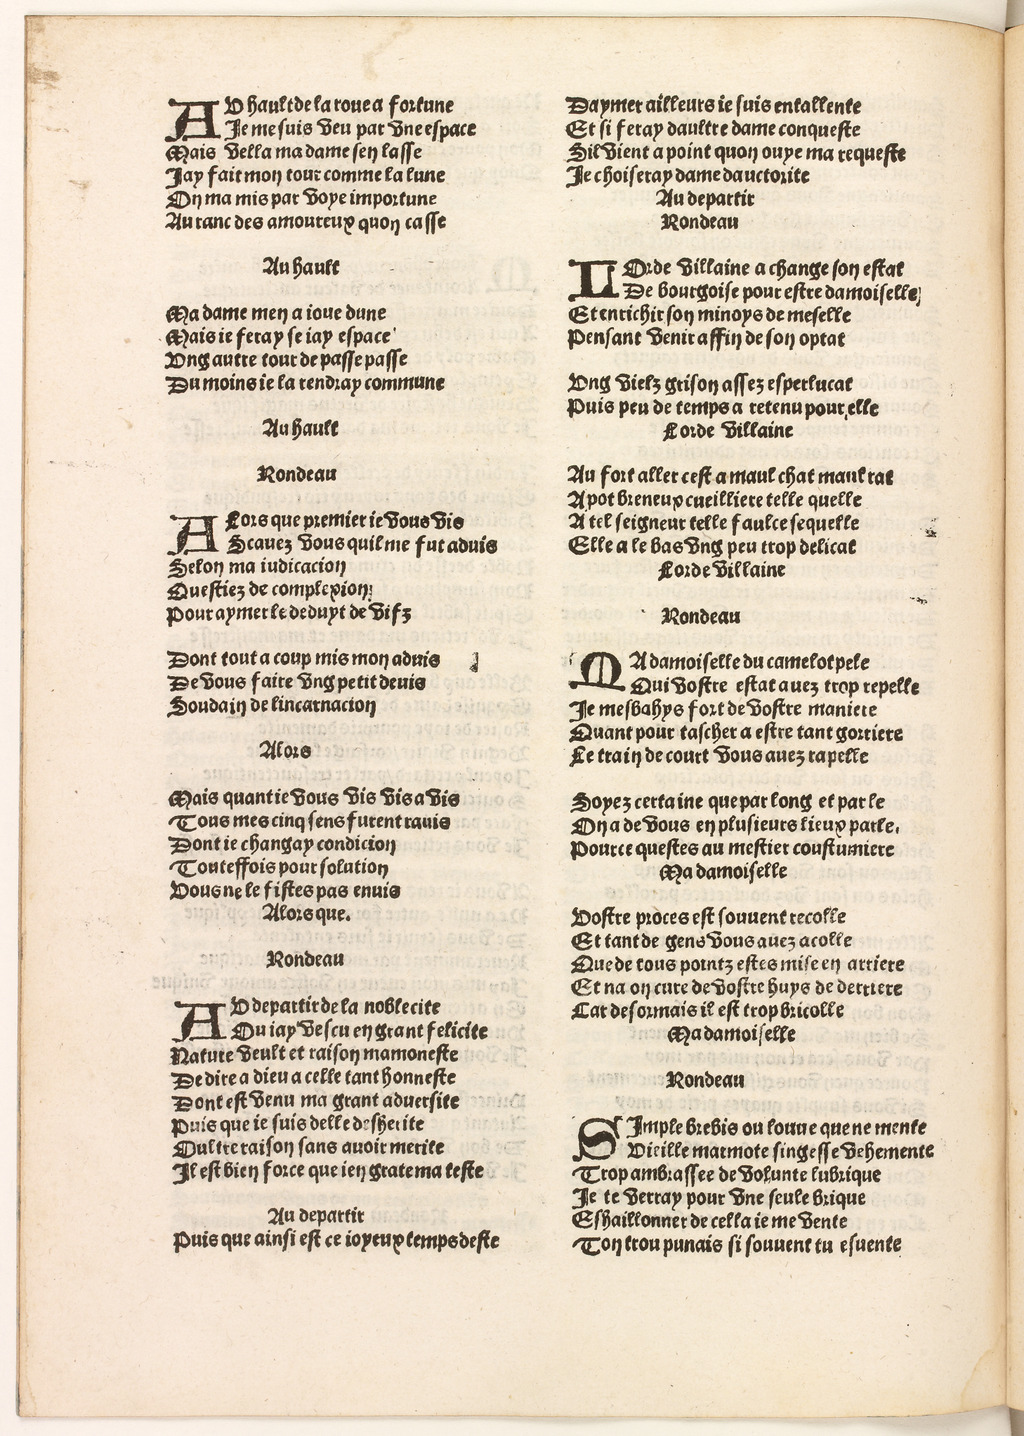 AV hault de la roue a fortune
Je me suis veu par vne espace
Mais vella ma dame sen lasse
Jay fait mon tour comme la lune
On ma mis par voye importune
Au ranc des amoureux quon casse
Au hault
Ma dame men a ioue dune
Mais ie feray se iay espace
Vng autre tour de passe passe
Du moins ie la rendray commune
Au hault
Rondeau
ALors que premier ie vous vis
Scauez vous quil me fut aduis
Selon ma iudicacion
Questiez de complexion
Pour aymer le deduyt de vifz
Dont tout a coup mis mon aduis
De vous faire vng petit deuis
Soudain de lincarnacion
Alors
Mais quant ie vous vis vis a vis
Tous mes cinq sens furent rauis
Dont ie changay condicion
Touteffois pour solution
Vous ne le fistes pas enuis
Alors que.
Rondeau
AV departir de la noble cite
Ou iay vescu en grant felicite
Nature veult et raison mamoneste
De dire a dieu a celle tant honneste
Dont est venu ma grant aduersite
Puis que ie suis delle desherite
Oultre raison sans auoir merite
Il est bien force que ien grate ma teste
Au departir
Puis que ainsi est ce ioyeux temps deste
Daymer ailleurs ie suis entallente
Et si feray daultre dame conqueste
Sil vient a point quon ouye ma requeste
Je choiseray dame dauctorite
Au departir
Rondeau
LOrde villaine a change son estat
De bourgoise pour estre damoiselle
Et enrichir son minoys de meselle
Pensant venir affin de son optat
Vng vielz grison assez esperlucat
Puis peu de temps a retenu pour elle
Lorde villaine
Au fort aller cest a maul chat maul rat
A pot breneux cueilliere telle quelle
A tel seigneur telle faulce sequelle
Elle a le bas vng peu trop delicat
Lorde villaine
Rondeau
MA damoiselle du camelot pele
Qui vostre estat auez trop repelle
Je mesbahys fort de vostre maniere
Quant pour tascher a estre tant gorriere
Le train de court vous auez rapelle
Soyez certaine que par long et par le
On a de vous en plusieurs lieux parle.
Pource questes au mestier coustumiere
Ma damoiselle
Vostre proces est souuent recolle
Et tant de gens vous auez acolle
Que de tous pointz estes mise en arriere
Et na on cure de vostre huys de derriere
Car desormais il est trop bricolle
Ma damoiselle
Rondeau
SImple brebis ou louue que ne mente
Vieille marmote singesse vehemente
Trop ambrassee de volunte lubrique
Je te verray pour vne seule brique
Eshaillonner de cella ie me vente
Ton trou punais si souuent tu esuente